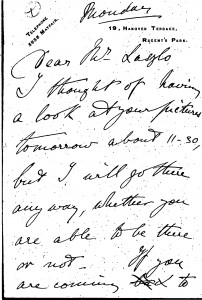 Monday
TELEPHONE
MAYFAIR.
19, HANOVER TERRACE,
REGENT'S PARK.
Dear Mr Laszlo
I thought of having
a look at your pictures
tomorrow about 11-30,
but I will go there
any way, whether you
are able to be there
or not - If you
are coming to